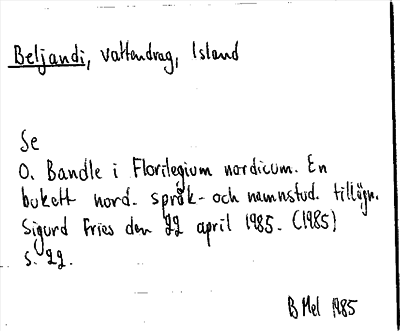 Beljandi, vattendrag, Island
Se
O. Bandle i Florilegium nordicum. En
bukett nord. språk- och namnstud. tillägn.
Sigurd Fries den 22 april 1985. (1985)
s. 22.
B Mel 1985